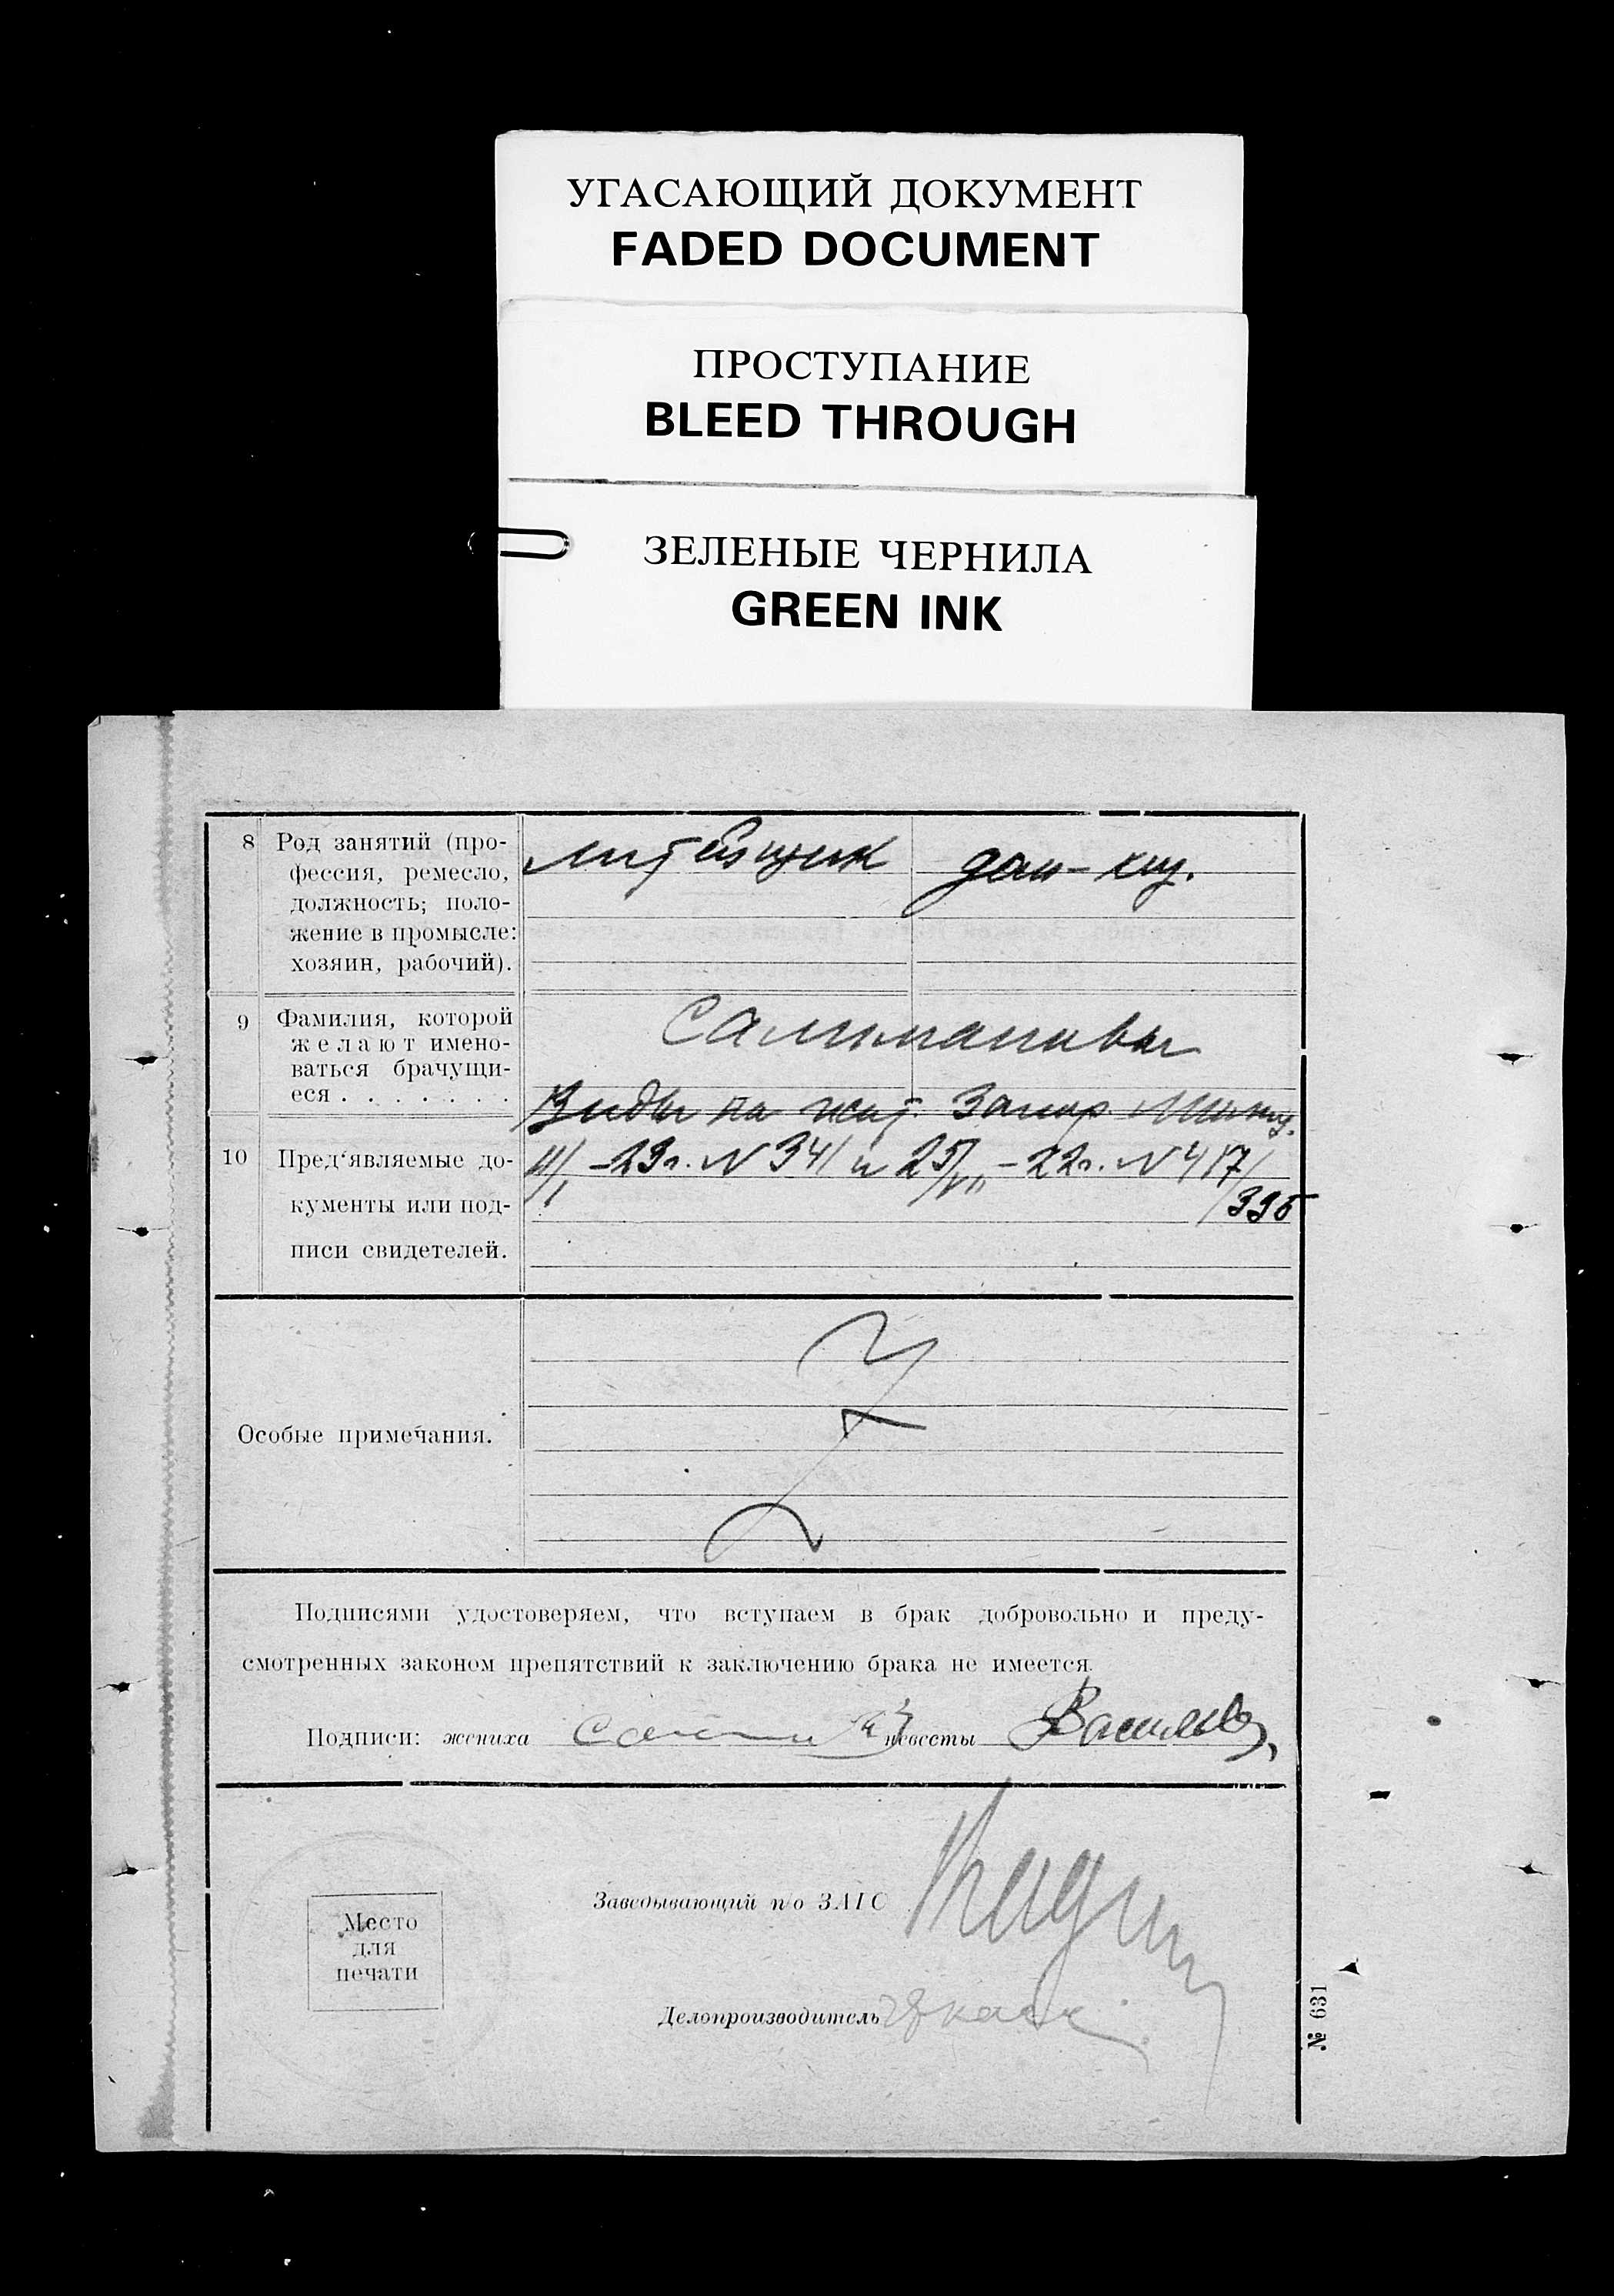 УГАСАЮЩИЙ ДОКУМЕНТ
FADED DOCUMENT
ПРОСТУПАНИЕ
BLEED THROUGH
ЗЕЛЕНЫЕ ЧЕРНИЛА
GREEN INK
8 Род занятий (про-
фессия, ремесло,
должность; поло-
жение в промысле:
хозяин, рабочий).
литейщик
дом-хоз.
9 Фамилия, которой
желают имено-
ваться брачущи-
еся . . . . . . .
Салимановы
10 Пред‘являемые до-
кументы или под-
писи свидетелей.
Виды на жит.
–23г. N 341 и 25/VII –22г. N 417/
395
Особые примечания.
Подписями удостоверяем, что вступаем в брак добровольно и преду-
смотренных законом препятствий к заключению брака не имеется.
Подписи: жениха невесты
Заведывающий п/о ЗАГС
Место
для
печати
Делопроизводитель
№ 631